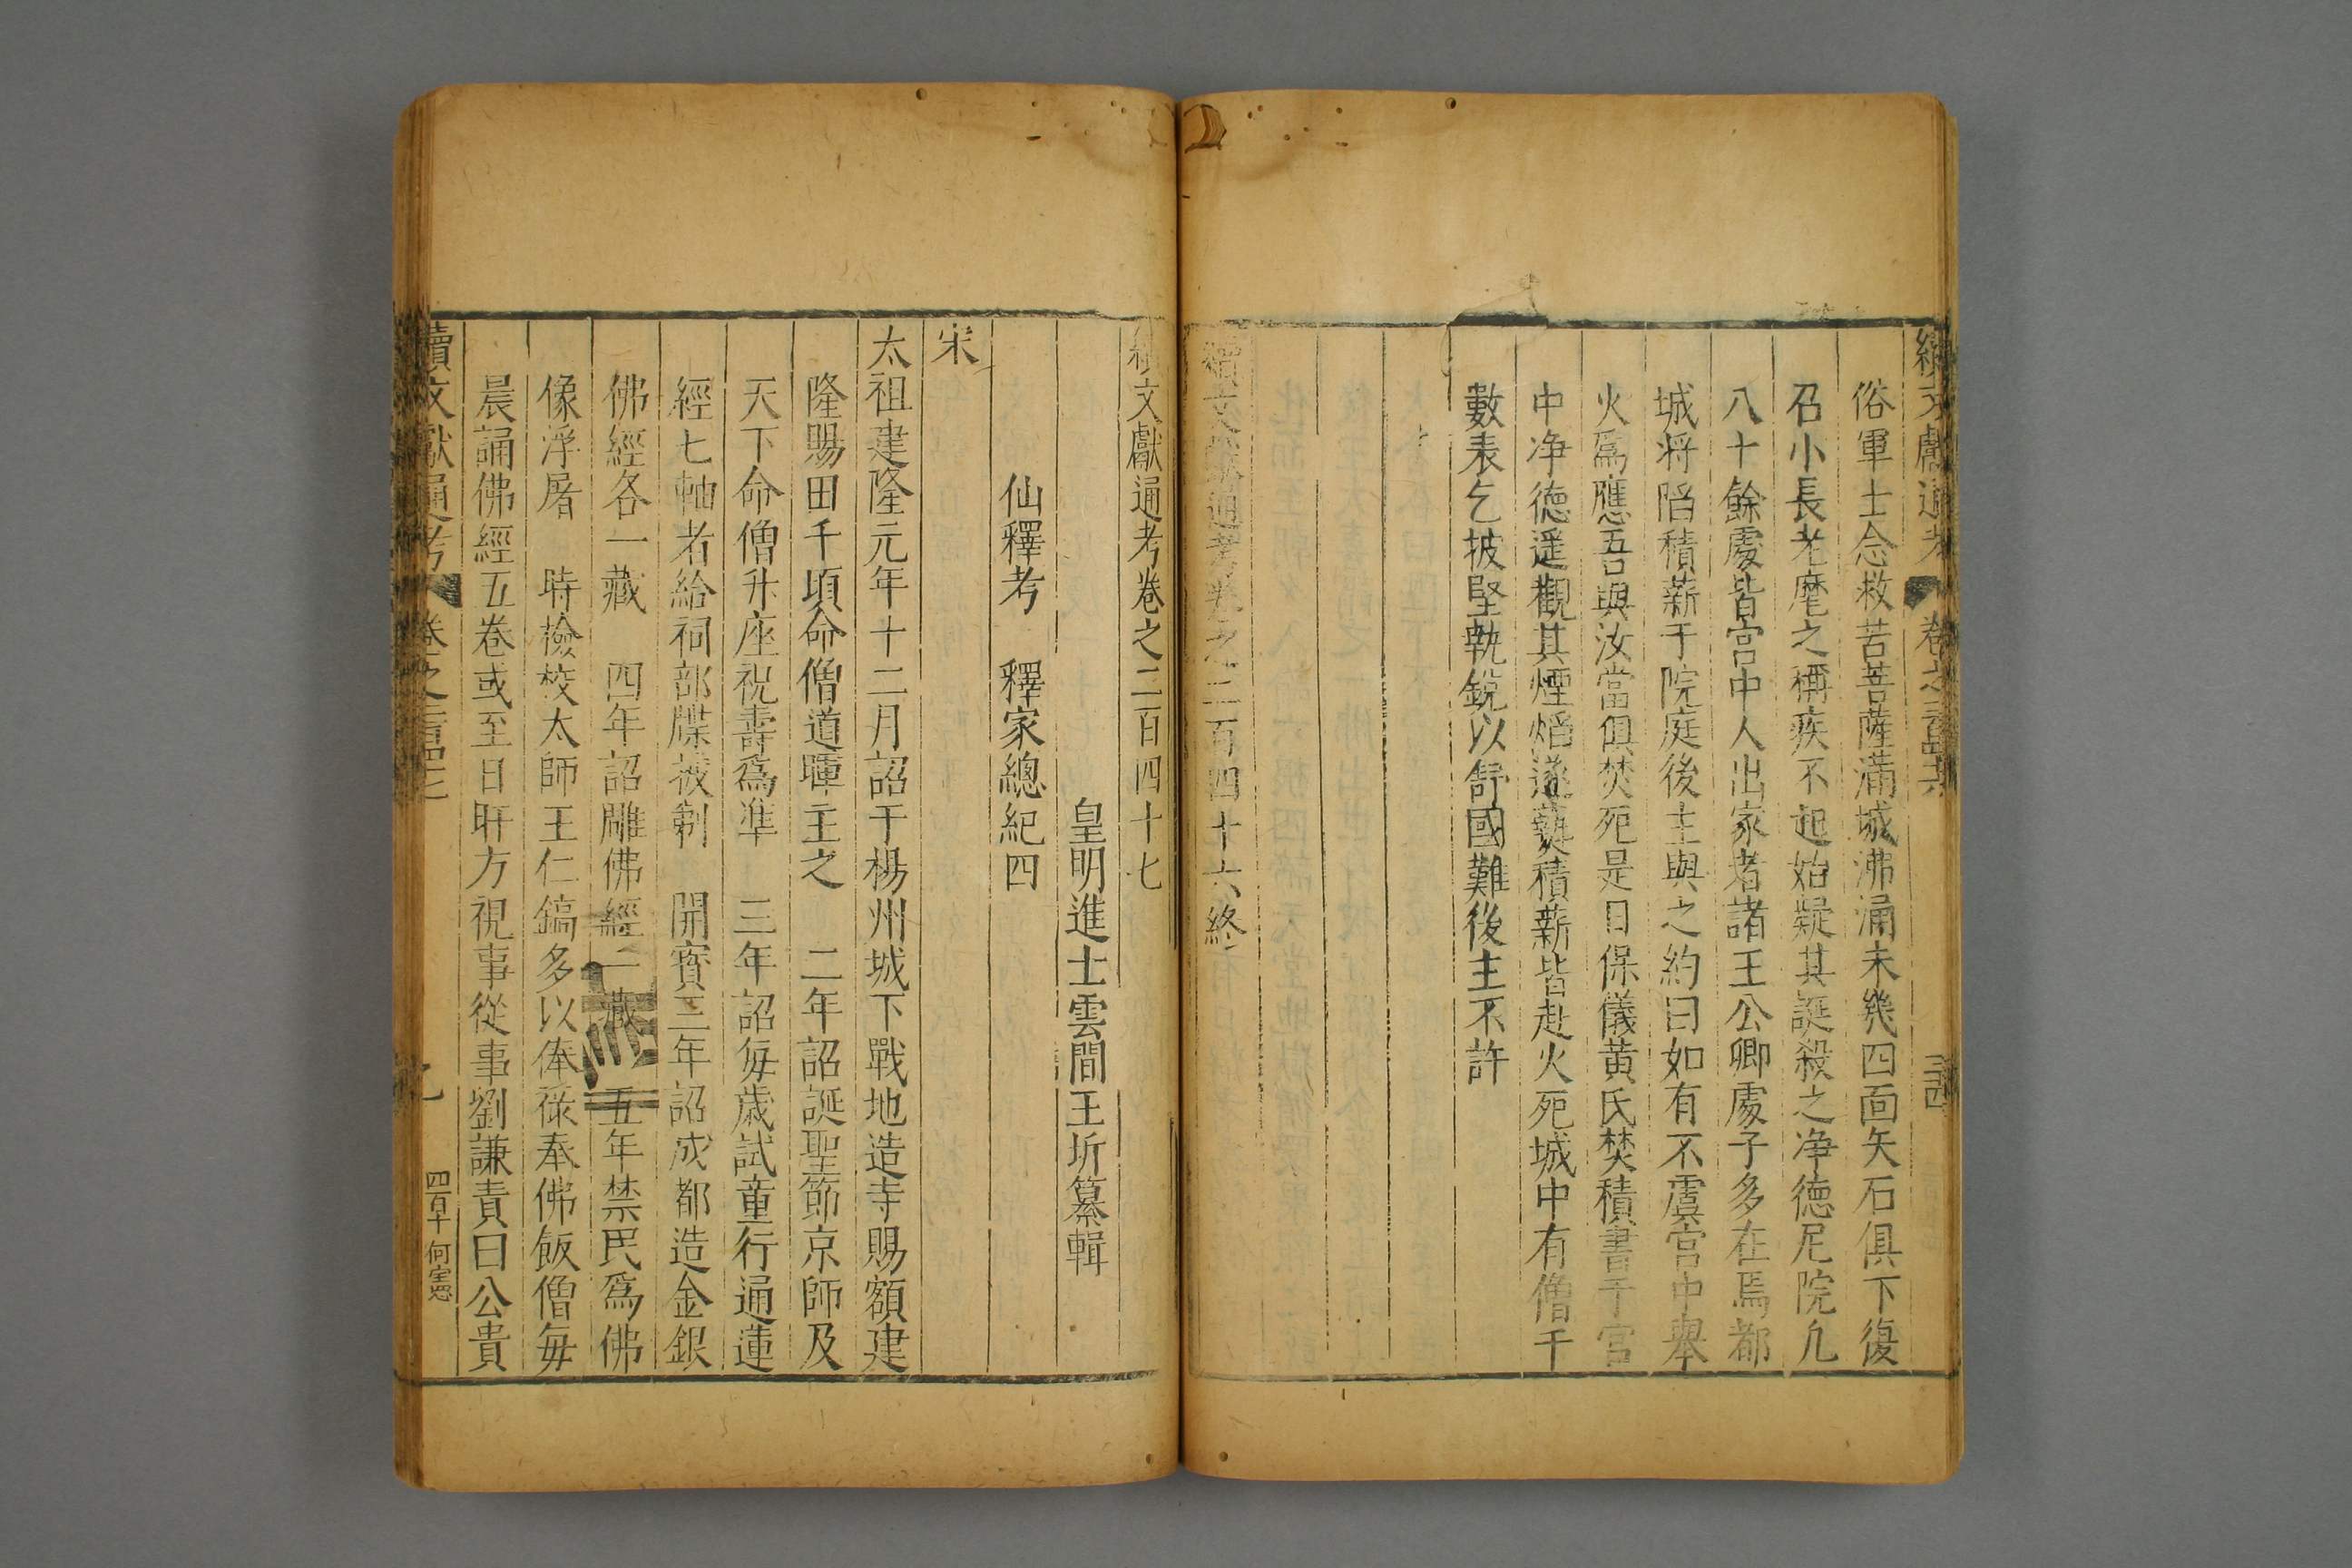 續文獻通考 卷之二百四十六 三十四
俗軍士念救苦菩薩滿城沸涌未幾四面矢石俱下復
召小長老麾之稱疾不起始疑其誕殺之净德尼院凡
八十餘處皆宮中人出家者諸王公卿處子多在焉都
城将陷積薪于院庭後主與之約曰如有不虞宮中舉
火爲應吾與汝當俱焚死是日保儀黄氏焚積書于宮
中净德遥觀其煙熖遂爇積薪皆赴火死城中有僧千
數表乞披堅執銳以紓國難後主不許
續文獻通考卷之二百四十六終
續文獻通考卷之二百四十七
皇明進士雲間王圻纂輯
仙釋考 釋家總紀四
宋
太祖建隆元年十二月詔于楊州城下戰地造寺賜額建
隆賜田千頃命僧道暉主之 二年詔誕聖節京師及
天下命僧升座祝壽爲準 三年詔每歲試童行通蓮
經七軸者給祠部牒披剃 開寳三年詔成都造金銀
佛經各一藏 四年詔雕佛經一藏 五年禁民爲佛
像浮屠 時檢校太師王仁鎬多以俸祿奉佛飯僧每
晨誦佛經五卷或至日旰方視事從事劉謙責曰公貴
續文獻通考 卷之二百四十七 一
四百十 何憲